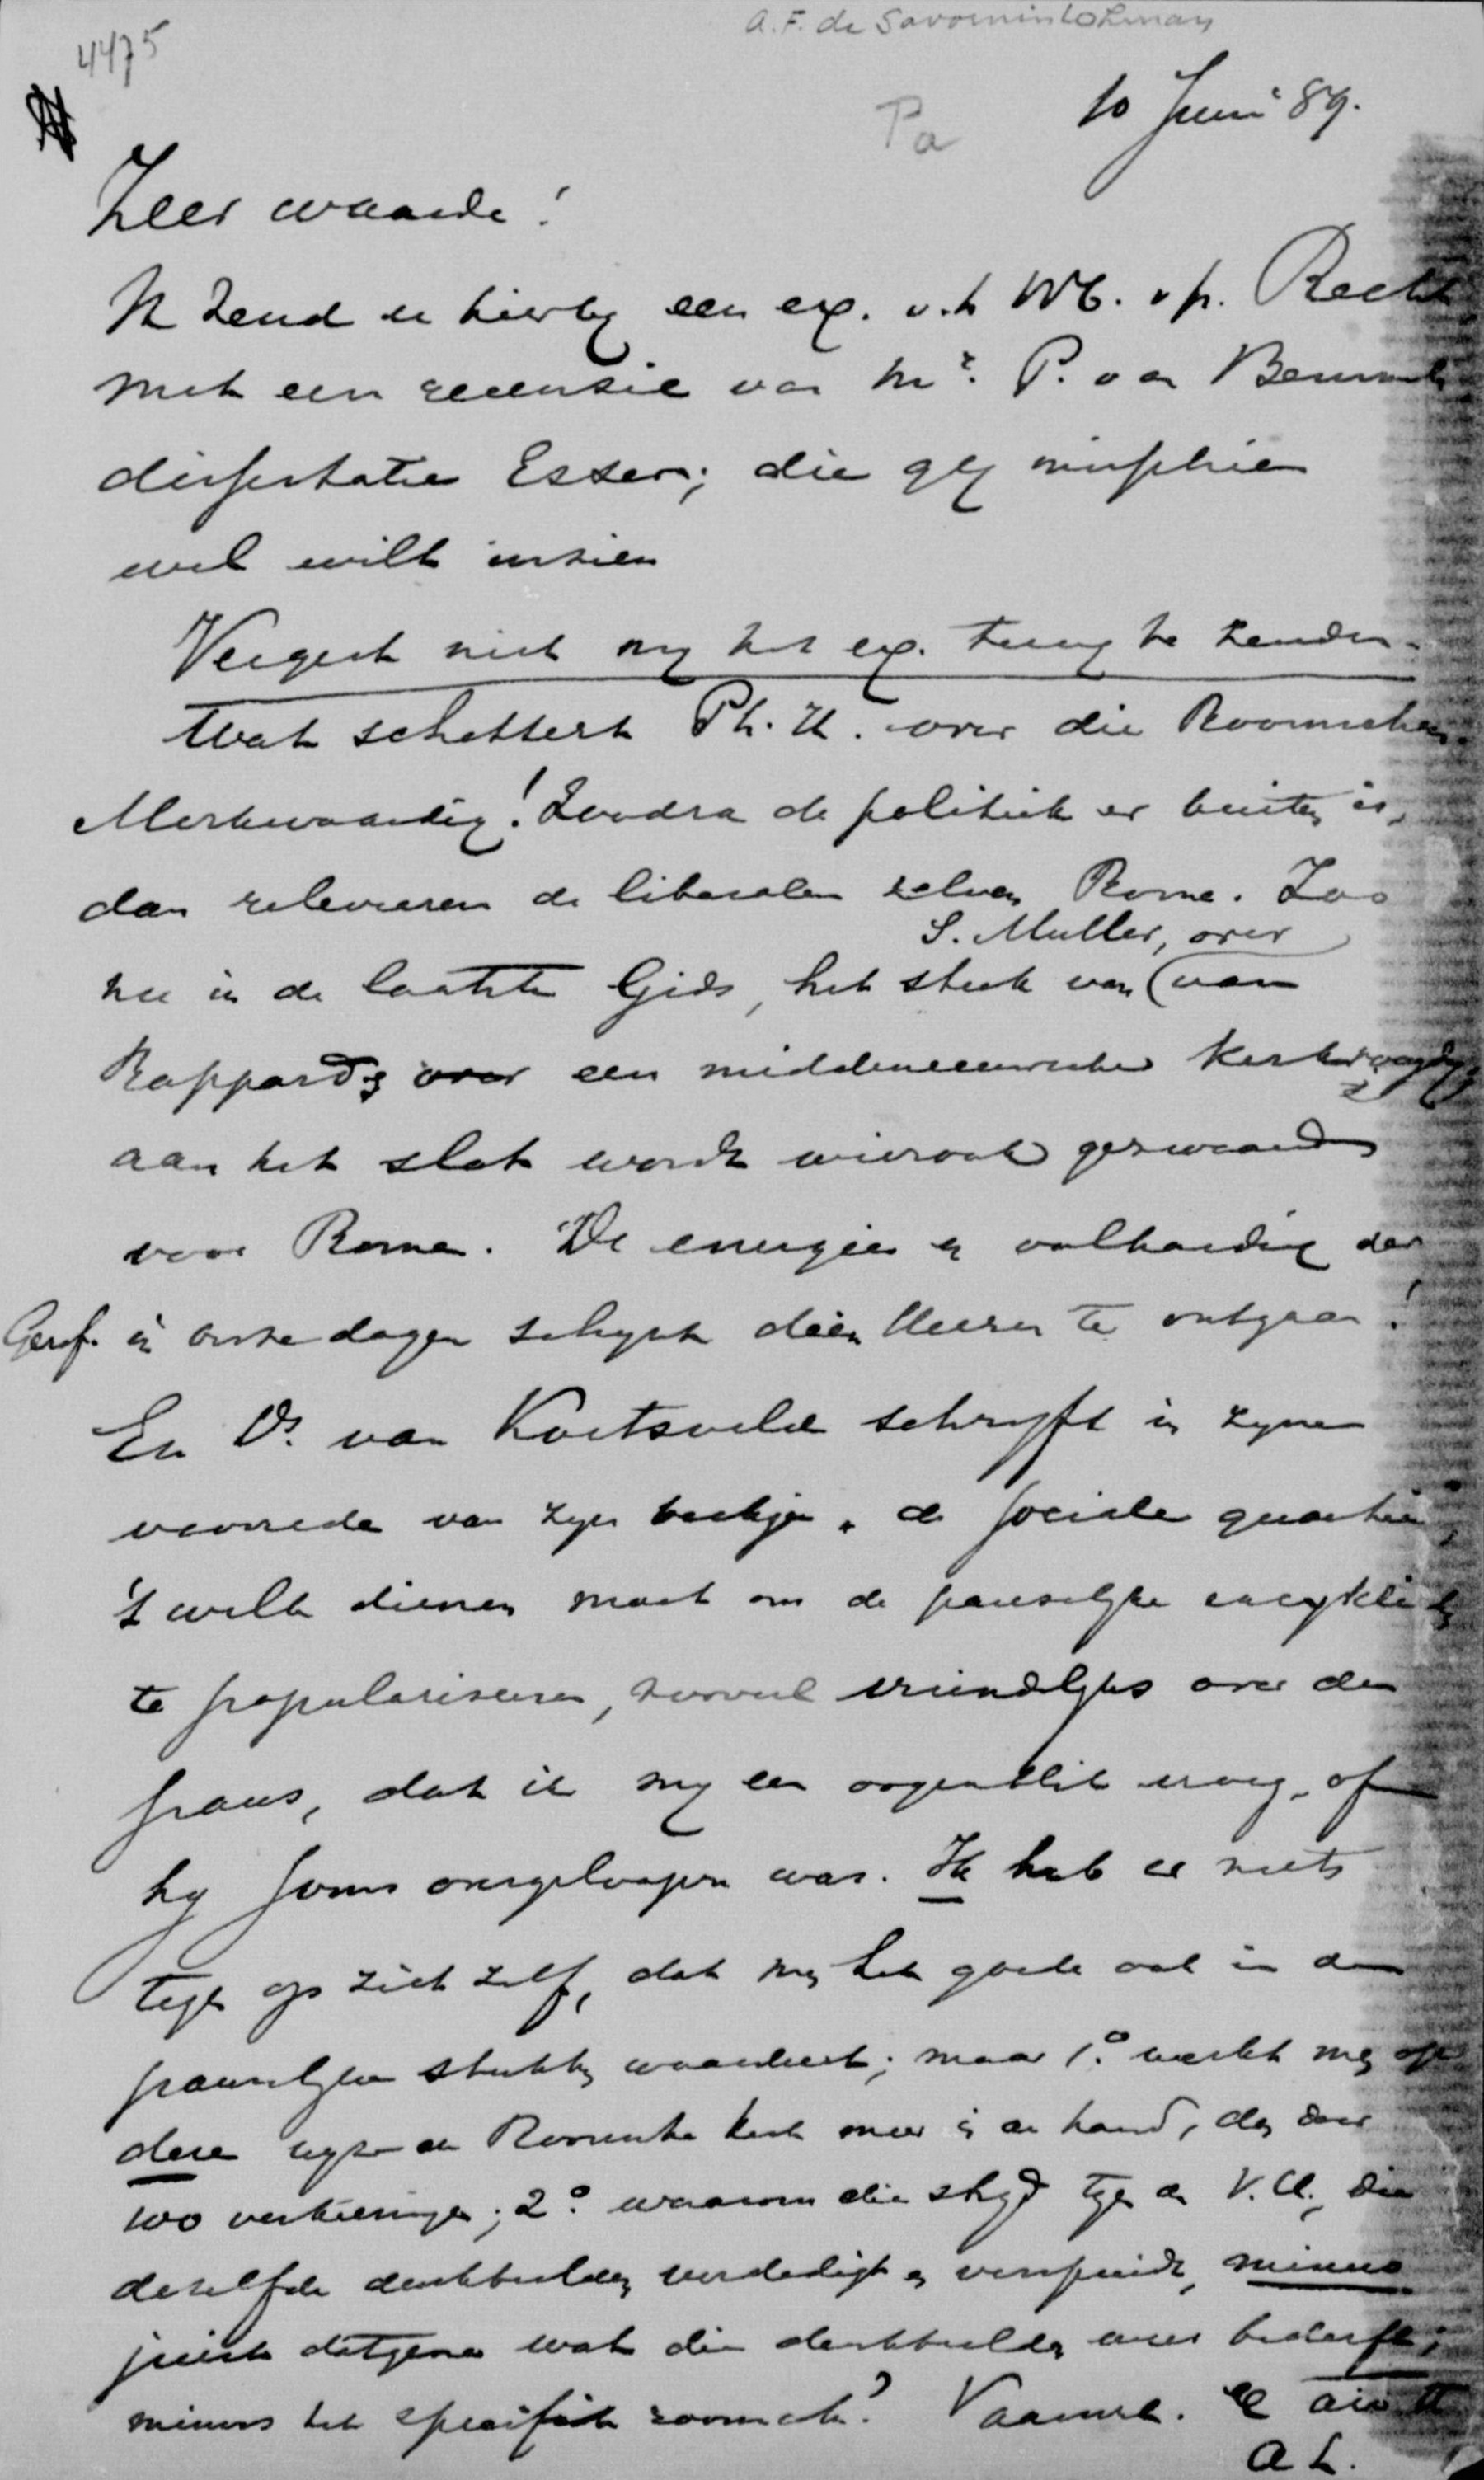 A.F. de Savornin Lohman
4475
Pa
10 Juni 89.
Zeer waarde!
Ik zend u hierbij een ex. v. h. Wb. v/h. Recht
met een recensie van Mr. P. van Bemmel
dissertatie Esser; die gij misschien
wel wilt inzien
Vergeet niet mij het ex. terug te zenden.
Wat schettert Ph. H. over die Roomschen.
Merkwaardig! Zoodra de politiek er buiten is,
dan releveeren de liberalen zelven Rome. Zoo
S. Muller, over
nu in de laatste Gids, het stuk van (van
Rappard over een middeneeuwsche
aan het slot wordt wierook gezwaaid
voor Rome. De energie en volharding der
Geref. in onze dagen schijnt dien Heeren te ontgaan!
En Ds. van Koetsveld schrijft in zijne
voorrede van zijn boekje "de sociale quaestie,
't welk dienen moet om de pauselijke encykliek
te populariseeren, zooveel vriendelijks over den
paus, dat ik mij een oogenblik vroeg, of
hij soms overgeloopen was. Ik heb er niets
tegen op zich zelf, dat mij het goede ook in de
pauselijke stukken waardeert; maar 1.° werkt mij op
deze wijze de Roomsche kerk meer in de hand, dan door
100 verkiezingen; 2.° waarom die strijd tegen de V.U., die
dezelfde denkbeelden verdedigt en verspreidt, minus
juist datgene wat die denkbeelden weer bederft;
minus het specifiek roomsch? Vaarwel. t.à.v.
A L.